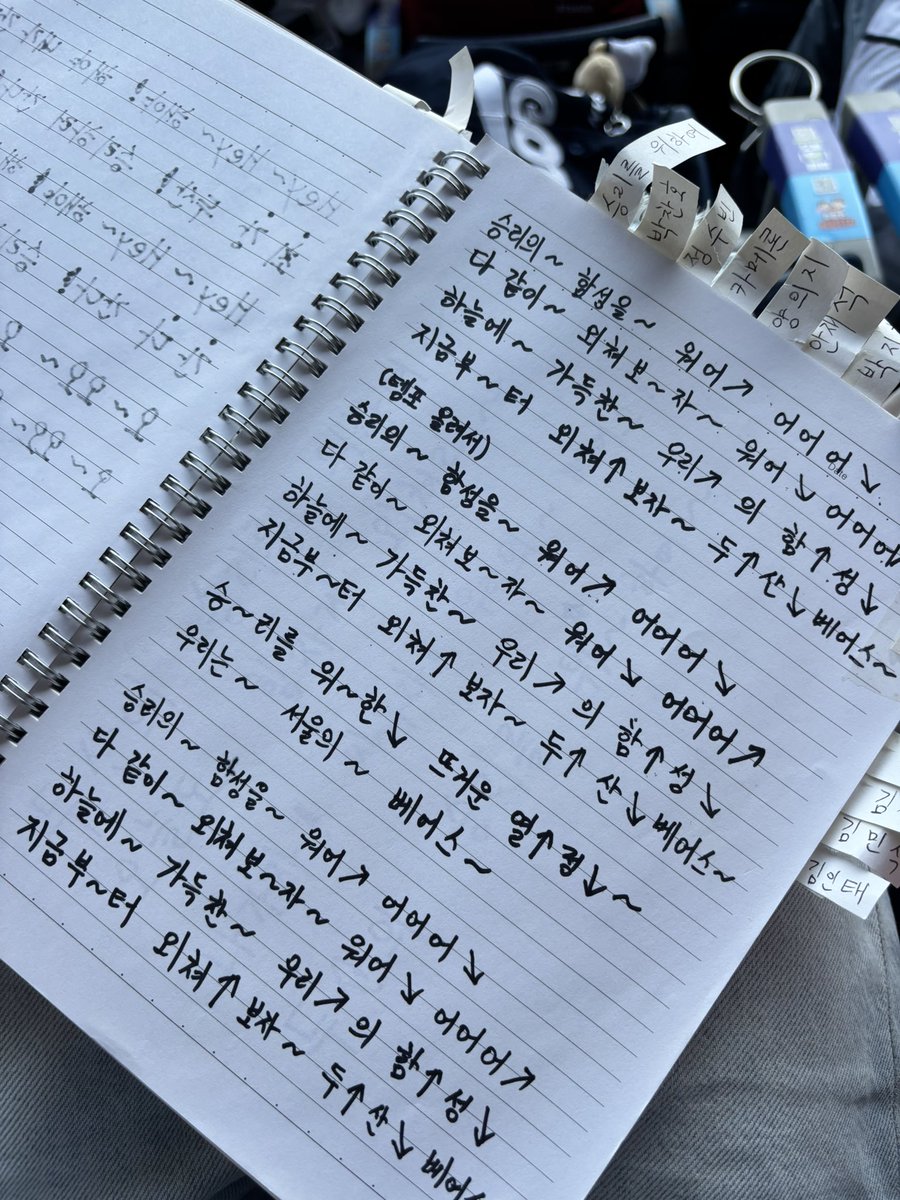 승리를 위하여
박찬호
정수빈
카메론
양의지
안재석
박지
승리의~ 함성을~ 워어↗ 어어어↘
다 같이~ 외쳐보~자~ 워어↘ 어어어↗
하늘에~ 가득찬~ 우리↗의 함↑성↓
지금부~터 외쳐↑보자~ 두↑산↘베어스~
(템포 올려서)
승리의~ 함성을~ 워어↗ 어어어↘
다 같이~ 외쳐보~자~ 워어↘ 어어어↗
하늘에~ 가득찬~ 우리↗의 함↑성↓
지금부~터 외쳐↑보자~ 두↑산↓베어스~
승~리를 위~한↓ 뜨거운 열↑정↓~
우리는~ 서울의~ 베어스~
승리의~ 함성을~ 워어↗ 어어어↘
다 같이~ 외쳐보~자~ 워어↘ 어어어↗
하늘에~ 가득찬~ 우리↗의 함↑성↓
지금부~터 외쳐↑보자~ 두↑산↓베어스~
김
김민석
김인태